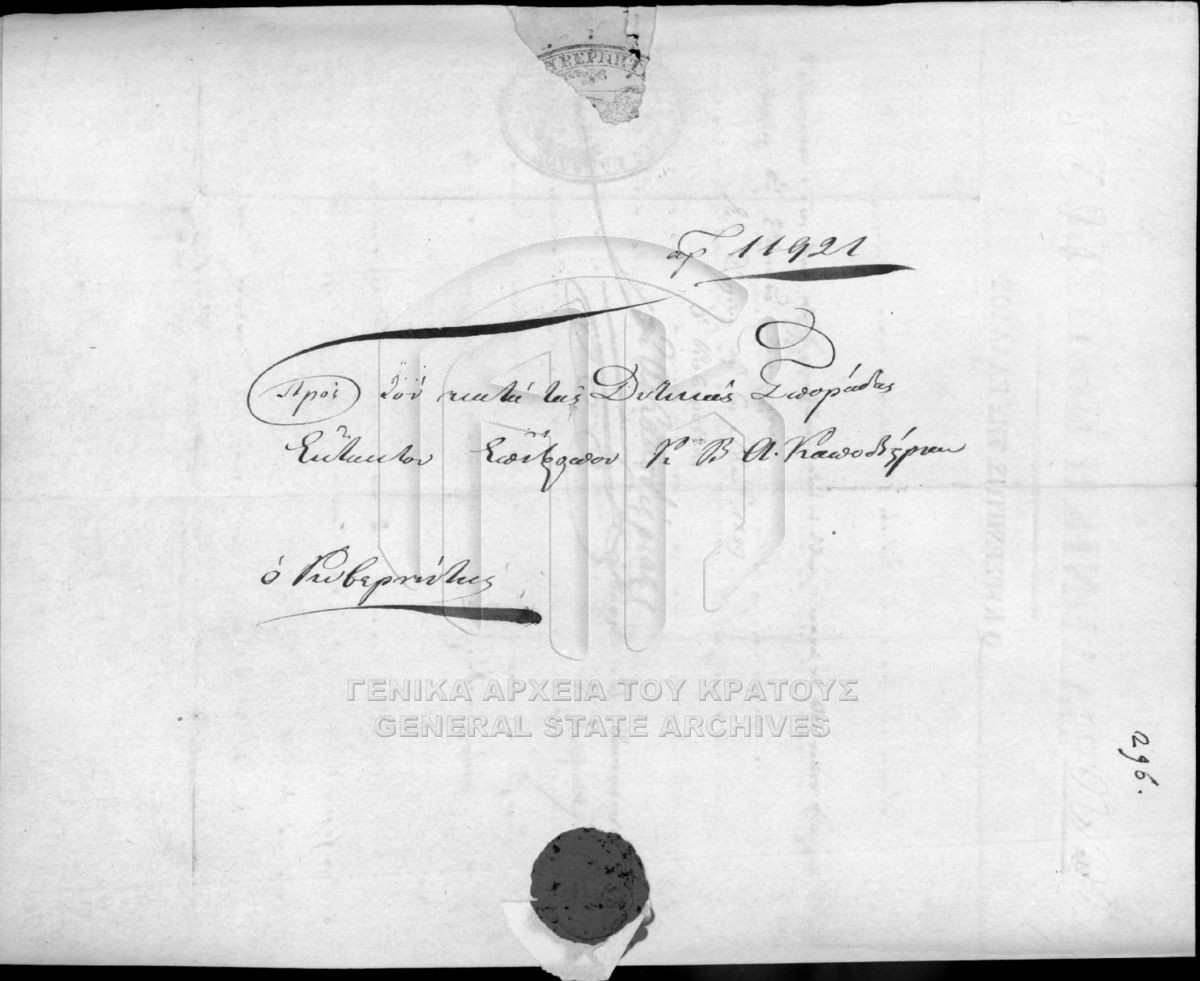 ΥΒΕΡΝΗΤ
αρ 11921
Πρὸς Τὸν κατὰ τὰς Δυτικὰς Σποράδας
Ἔκτακτον Ἐπίτροπον Κ Β Α. Καποδίστριαν
ὁ Κυβερνήτης
ΓΕΝΙΚΑ ΑΡΧΕΙΑ ΤΟΥ ΚΡΑΤΟΥΣ
GENERAL STATE ARCHIVES
296.